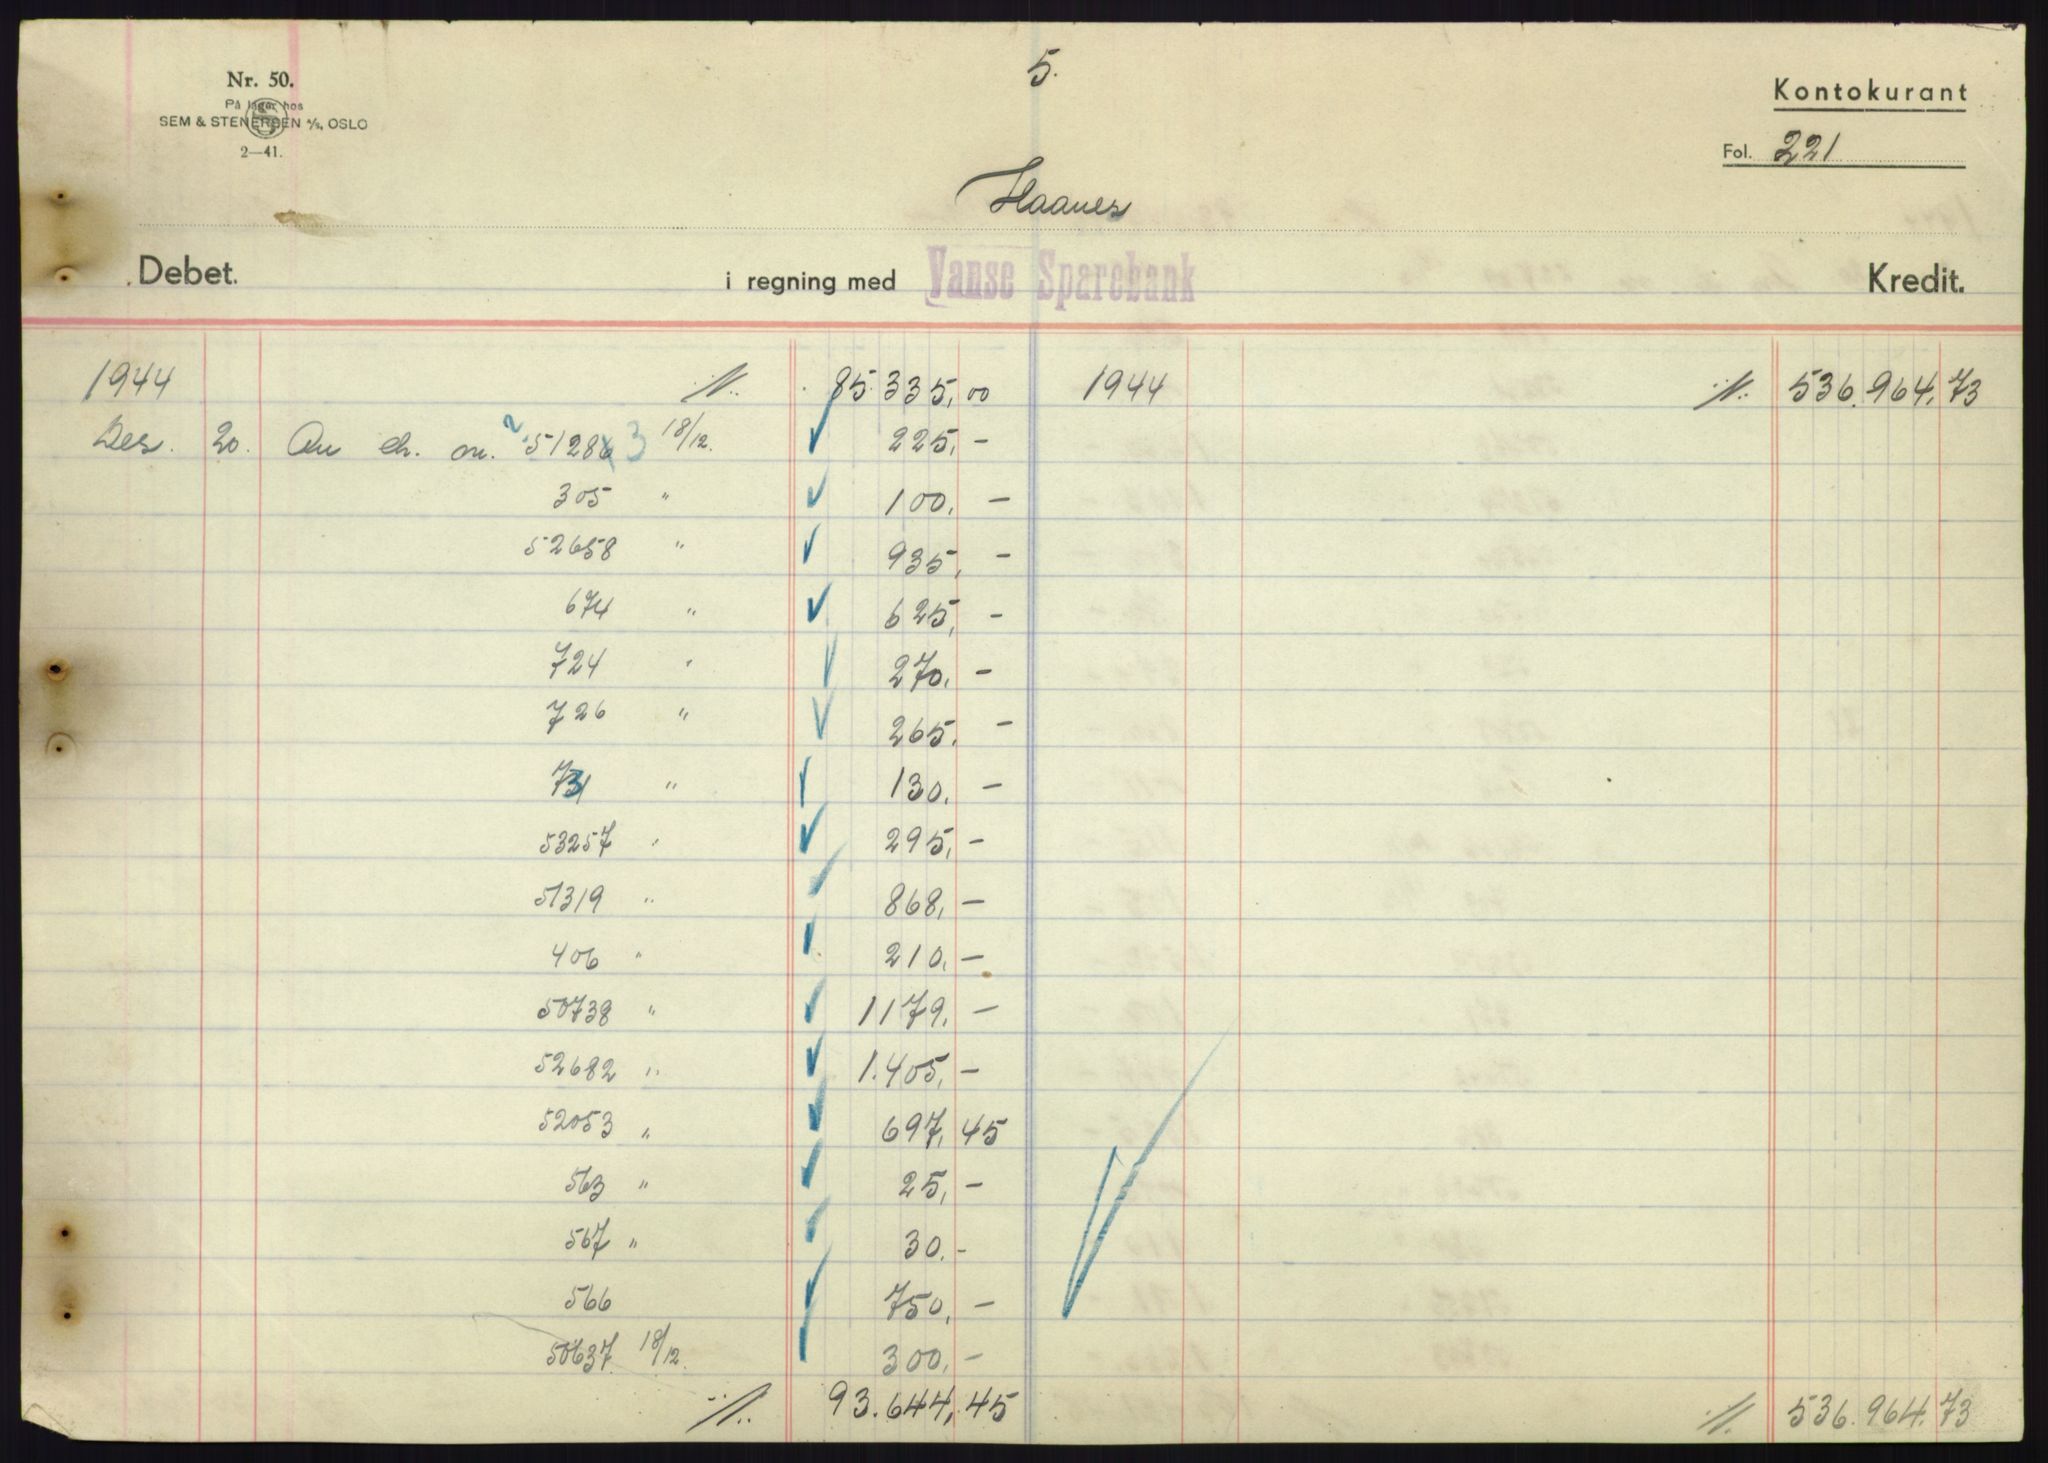 Nr. 50.
På lager hos
SEM & STENERSEN A/S, OSLO
2—41.
5.
Kontokurant
Fol. 221
Haanes
Debet. i regning med Vanse Sparebank Kredit.
1944 ·/. 85.335,00 1944 ·/. 536.964,73
Des. 20. An ch. nr. 51286 3 18/12. 225,-
305 " 100,-
52658 " 935,-
674 " 625,-
724 " 270,-
726 " 265,-
731 " 130,-
53257 " 295,-
51319 " 868,-
406 " 210,-
50738 " 1179,-
52682 " 1.405,-
52053 " 697,45
563 " 25,-
567 " 30,-
566 750,-
50637 18/12. 300,-
·/. 93.644,45 ·/. 536.964,73